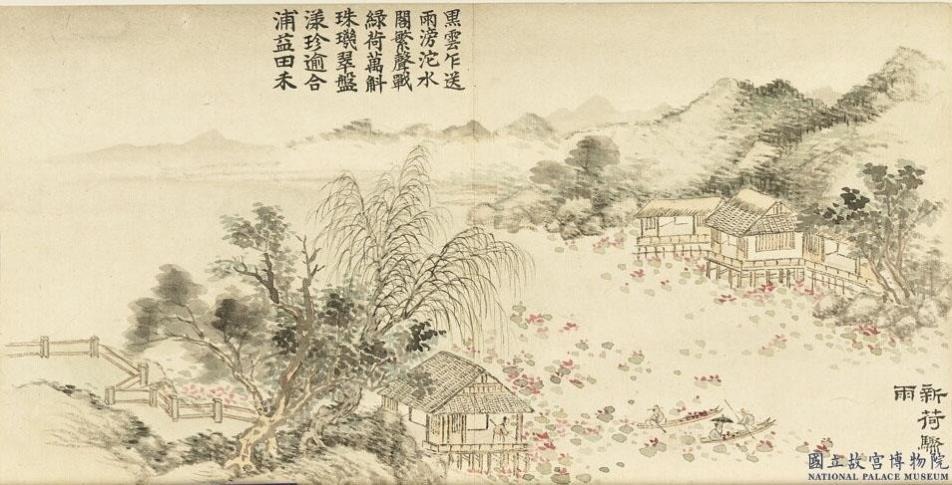 新荷驟
雨
黑雲乍送
雨滂沱水
閣繁聲戰
綠荷萬斛
珠璣翠盤
漾珍逾合
浦益田禾
國立故宮博物院
NATIONAL PALACE MUSEUM